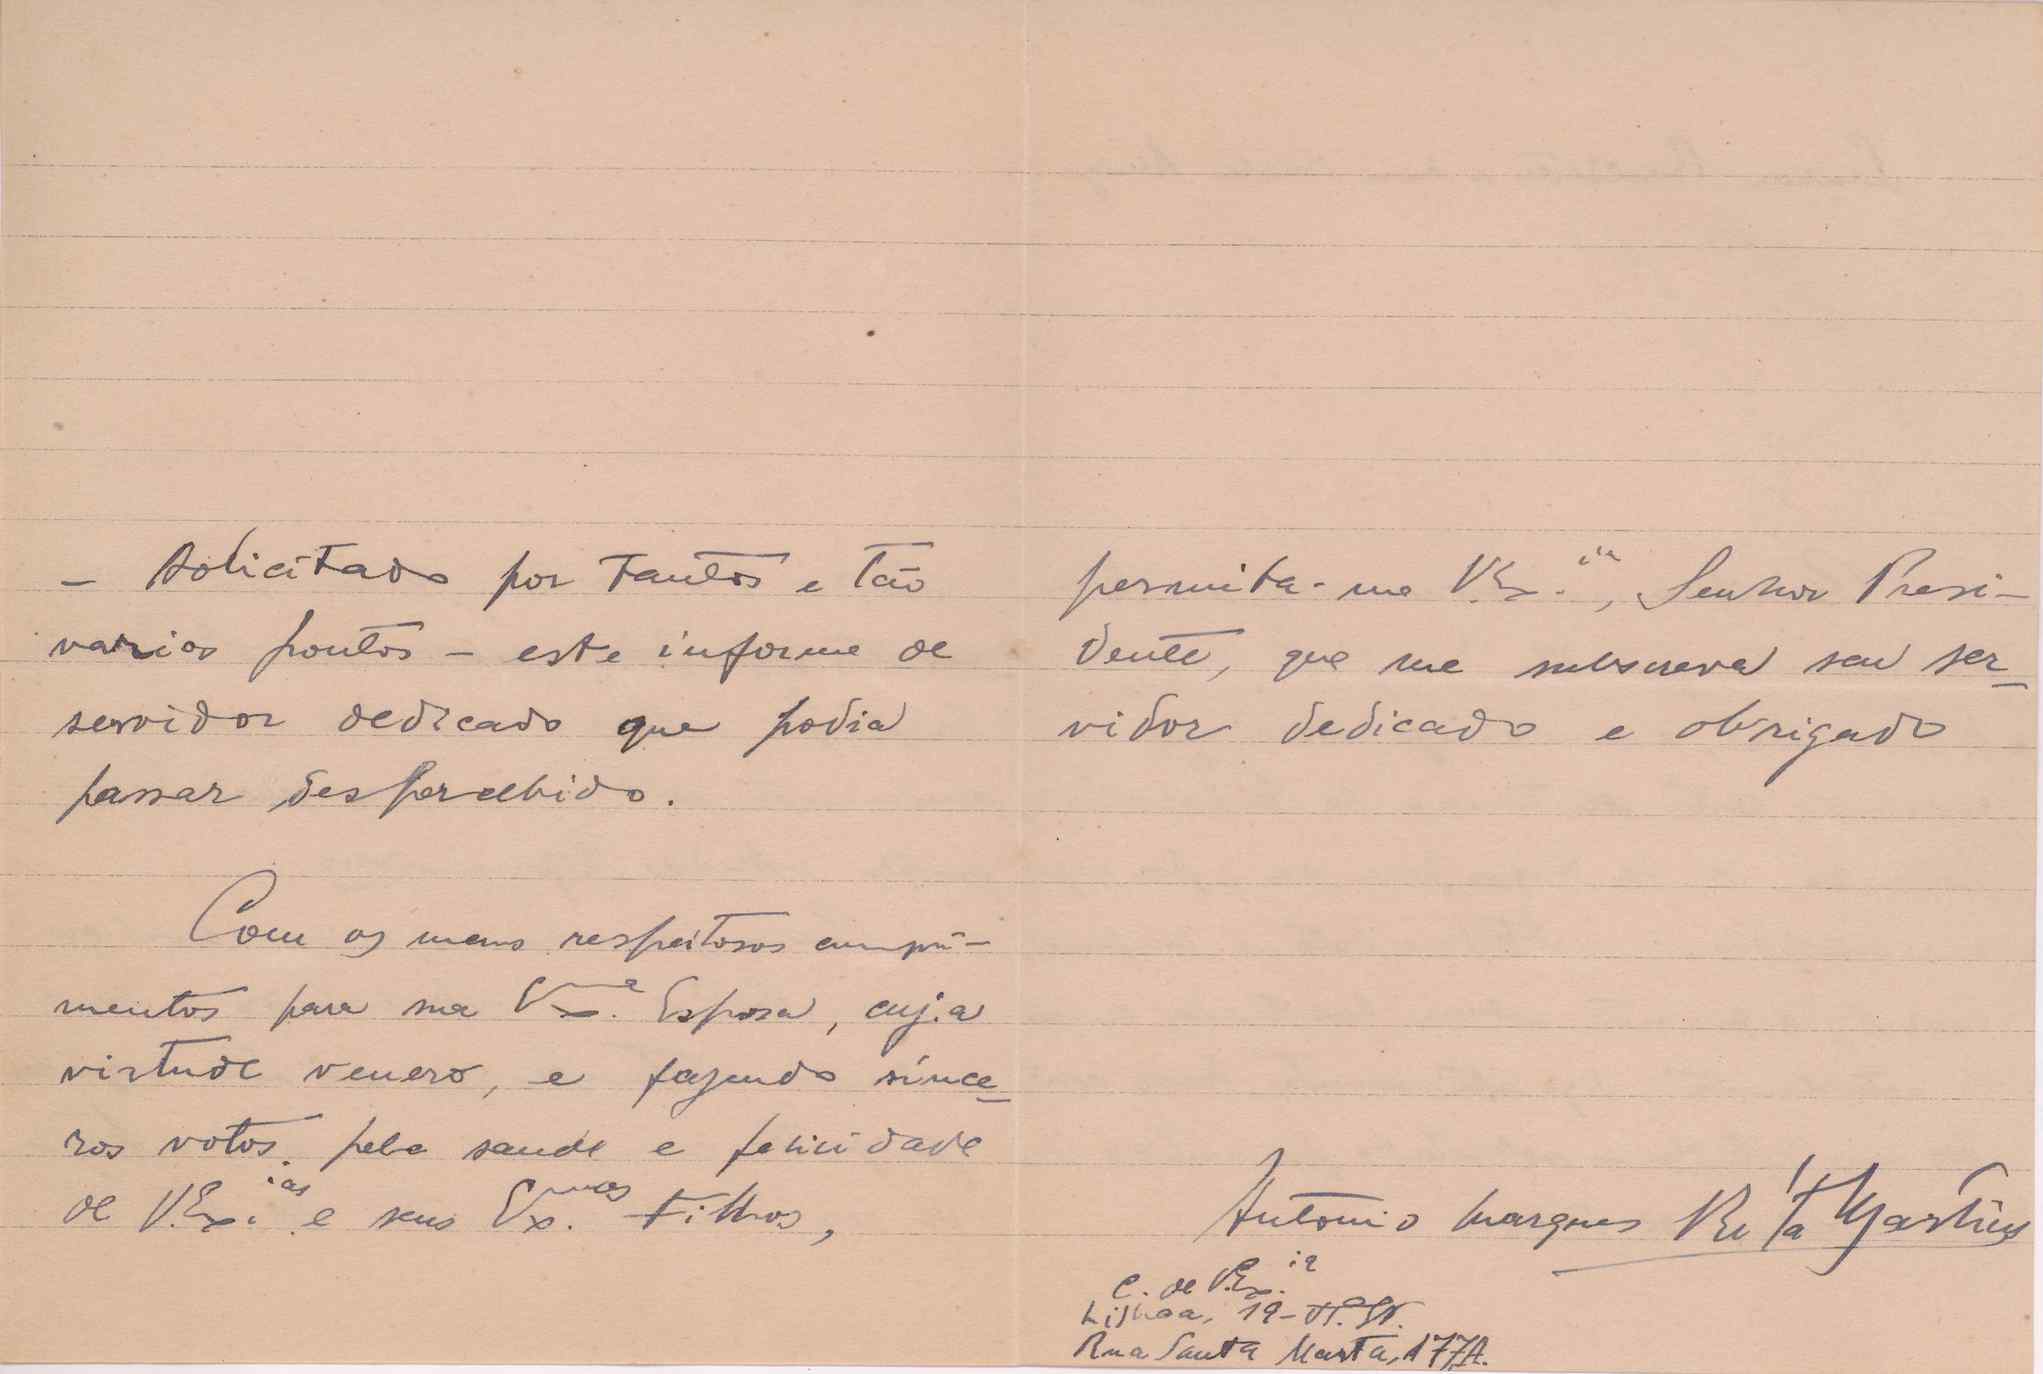 – solicitado por tantos e tão
varios pontos – este informe de
servidor dedicado que podia
passar despercebido.
Com os meus respeitosos cumpri-
mentos para sua Exma. Esposa, cuja
virtude venero, e fazendo since-
ros votos pela saude e felicidade
de V. Ex.ias e seus Ex.mos Filhos,
permita-me V. Ex.ia, Senhor Presi-
dente, que me subscreva seu ser-
vidor dedicado e obrigado
Antonio Marques Martins
C. de V. Ex.ia
Lisboa, 19-
Rua Santa Marta, 177A.